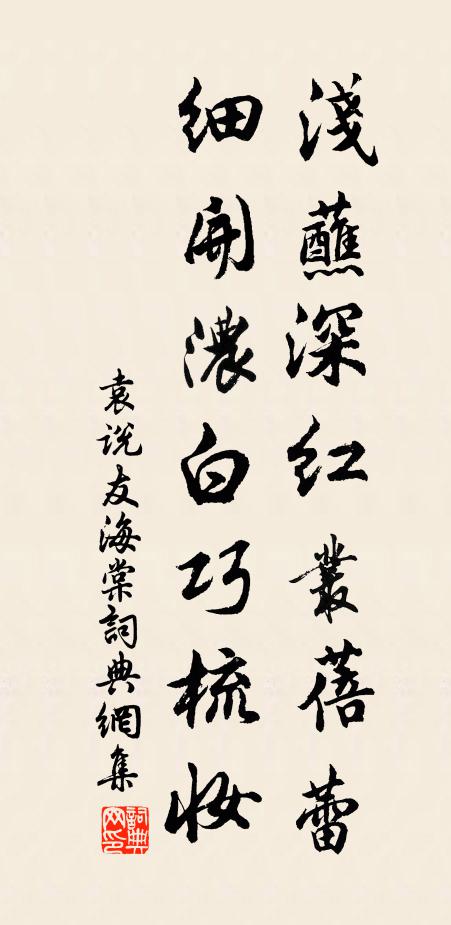 淺蘸深紅叢蓓蕾
細開濃白巧梳妝
袁說友海棠詞典網集
詞典網印